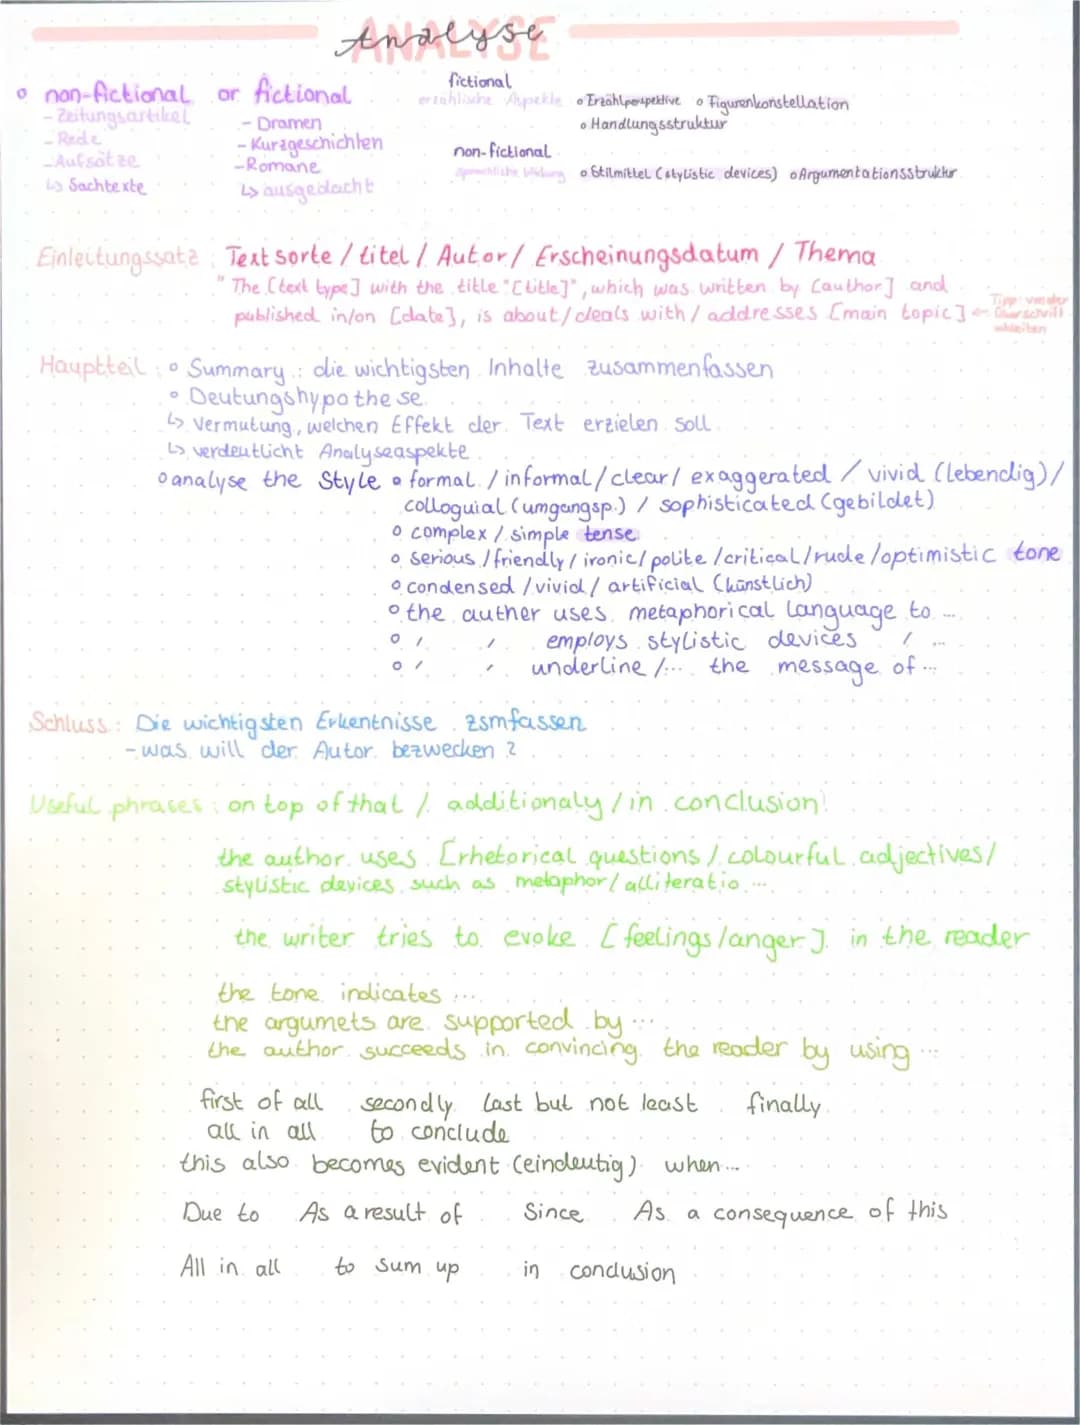 ANALYSE
Analyse
o non-fictional or fictional
- Zeitungsartikel
- Rede
- Aufsätze
↳ Sachtexte
- Dramen
- Kurzgeschichten
- Romane
↳ ausgedacht
fictional
erzählische Aspekte o Erzählperspektive o Figurenkonstellation
o Handlungsstruktur
non-fictional
sprachliche o Stilmittel (stylistic devices) o Argumentationsstruktur
Einleitungssatz : Textsorte / titel / Autor / Erscheinungsdatum / Thema
"The [text type] with the title "[title]", which was written by [author] and
published in/on [date], is about / deals with / addresses [main topic] ←
Tipp: von der
Überschrift
ableiten
Hauptteil : o Summary : die wichtigsten Inhalte zusammenfassen
o Deutungshypothese
↳ Vermutung, welchen Effekt der Text erzielen soll
↳ verdeutlicht Analyseaspekte
o analyse the Style o formal / informal / clear / exaggerated / vivid (lebendig) /
colloquial (umgangsp.) / sophisticated (gebildet)
o complex / simple tense
o serious / friendly / ironic / polite / critical / rude / optimistic tone
o condensed / vivid / artificial (künstlich)
o the auther uses metaphorical language to ...
o ' ' employs stylistic devices ' ...
o ' ' underline / ... the message of ...
Schluss : Die wichtigsten Erkentnisse zsmfassen
- was will der Autor bezwecken ?
Useful phrases : on top of that / additionaly / in conclusion
the author uses [rhetorical questions / colourful adjectives /
stylistic devices such as metaphor / alliteratio ...
the writer tries to evoke [feelings / anger] in the reader
the tone indicates ...
the argumets are supported by ...
the author succeeds in convincing the reader by using ...
first of all secondly last but not least finally
all in all to conclude
this also becomes evident (eindeutig) when ...
Due to As a result of Since As a consequence of this
All in all to sum up in conclusion